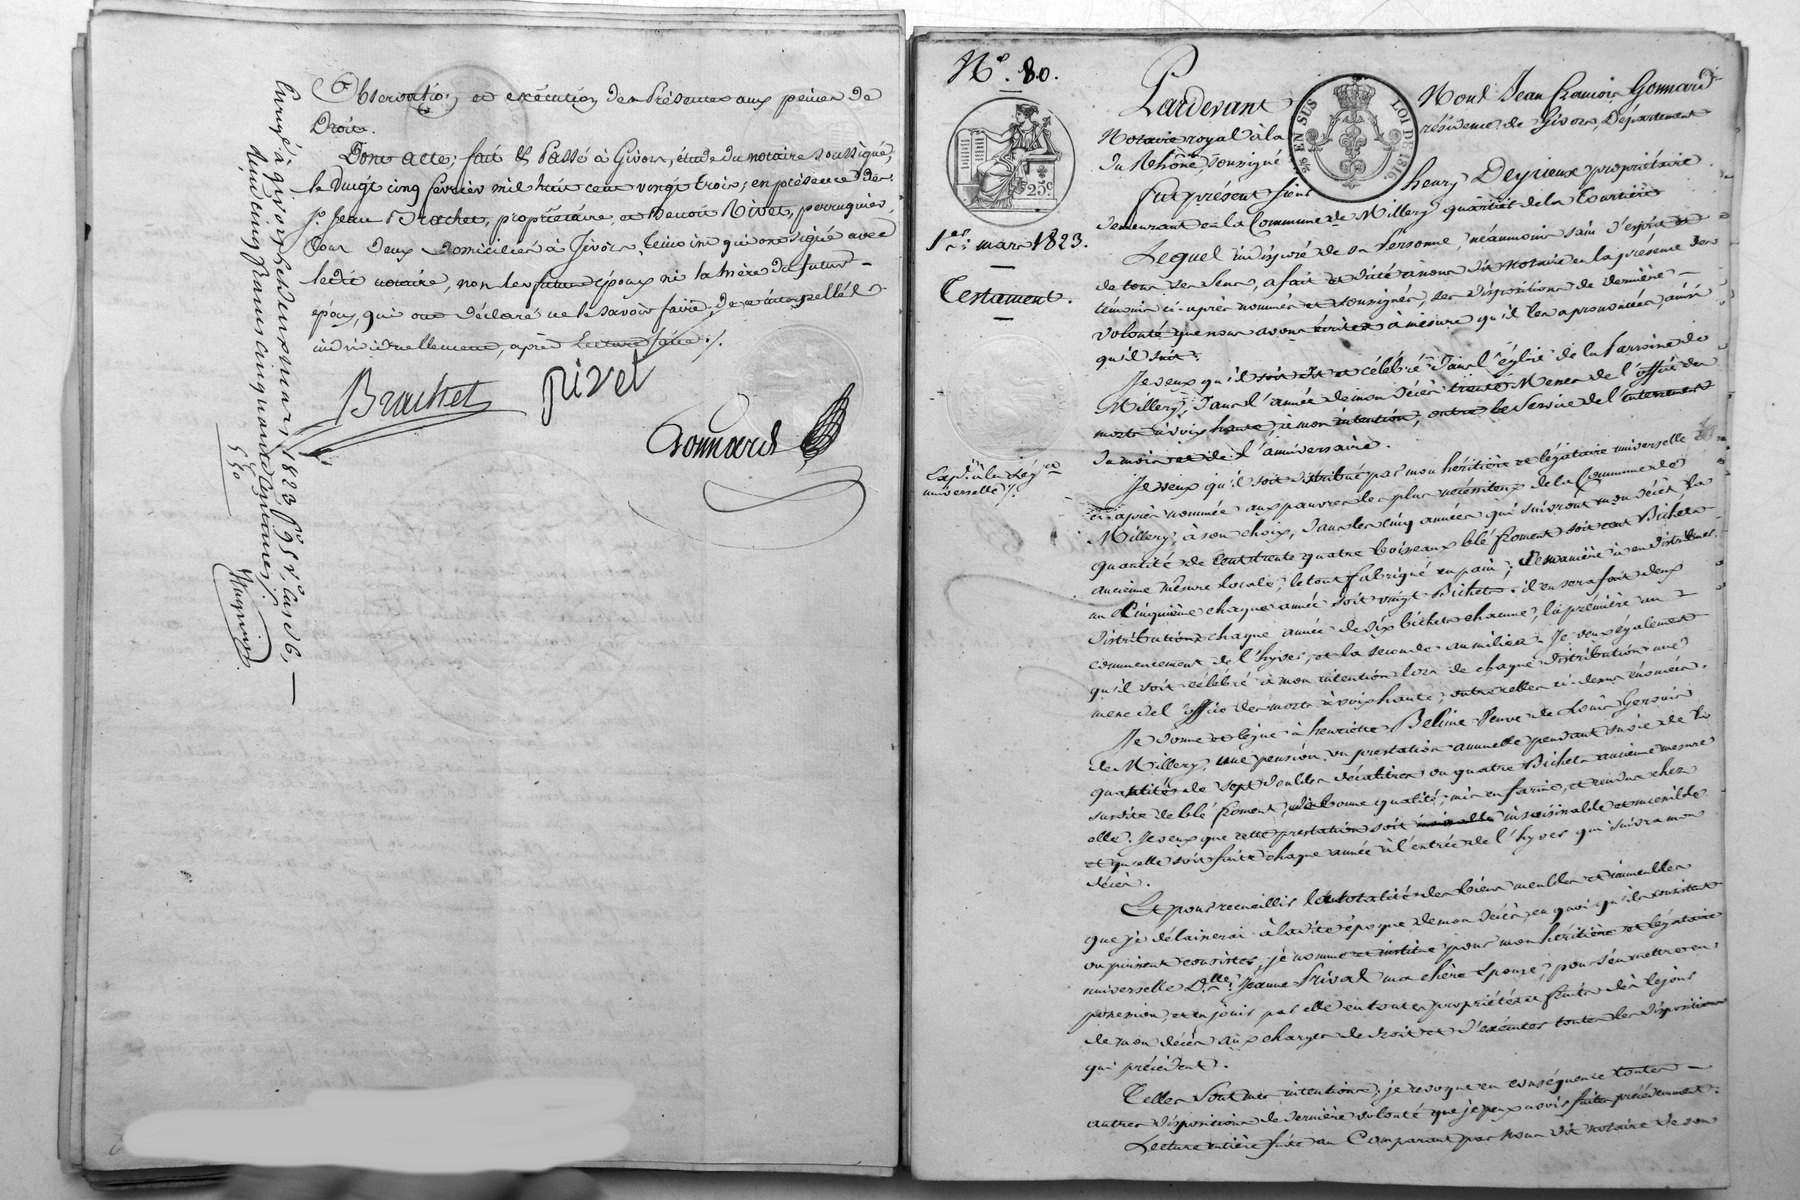 Observation, et exécution des Présentes aux peines de
Droit.
Dont acte; fait & Passé à Givors, étude du notaire soussigné,
le vingt cinq février mil huit cent vingt trois; en présence des
Srs. Jean Brachet, propriétaire, et Benoit Rivet, perruquier,
tous deux domiciliés à Givors, témoins qui ont signé avec
ledit notaire, non les futurs époux ni la mère du futur
époux, qui ont déclaré ne le savoir faire, de ce interpellés
individuellement, après lecture faite ./.
Brachet
Rivet
Gonnard
Enregé à givors le deux mars 1823 fo. 95 vo. Case 6,
reçu cinq francs cinquante centimes ./.
5
50
5 50
No. 80.
25c
1er. mars 1823.
Testament.
Expon. à la légre
universelle ./.
2/5 EN SUS
LOI DE 1816.
Pardevant Nous Jean François Gonnard
Notaire royal à la résidence de Givors, Département
du Rhône, soussigné
fut présent sieur henry Deyrieux propriétaire
demeurant en la Commune de Millery quartier de la Tourtière
Lequel indisposé de sa Personne, néanmoins sain d'esprit et
de tous ses sens, a fait et dicté à nous dit notaire en la présence des
témoins ci-après nommés et soussignés, ses dispositions de dernière
volonté que nous avons écrites à mesure qu'il les a prononcées, ainsi
qu'il suit:
Je veux qu'il soit dit et célébré dans l'église de la Paroisse de
Millery, dans l'année de mon décès trente Messes de l'office des
morts à voix haute, à mon intention, outre le service de l'enterrement
du mois et de l'anniversaire.
Je veux qu'il soit distribué par mon héritière et légataire universelle
ci après nommée aux pauvres les plus nécessiteux de la Commune de
Millery, à son choix, dans les cinq années qui suivront mon décès, la
quantité de cent trente quatre boisseaux blé froment soit cent Bichets
ancienne mesure locale, le tout fabriqué en pain; de manière à en distribuer
un cinquième chaque année soit vingt Bichets. il en sera fait deux
distributions chaque année de dix bichets chacune, la première au
commencement de l'hyver, et la seconde au milieu. Je veux également
qu'il soit célébré à mon intention lors de chaque distribution une
messe de l'office des morts à voix haute, outre celles ci-dessus énoncées.
Je donne et lègue à henriette Beline Veuve de Louis Gervais
de Millery, une pension ou prestation annuelle pendant sa vie de la
quantité de sept doubles décalitres ou quatre Bichets ancienne mesure
susdite de blé froment, de bonne qualité, mis en farine, et rendu chez
elle. Je veux que cette prestation soit insaisissable et incessible
et qu'elle soit faite chaque année à l'entrée de l'hyver qui suivra mon
décès.
Et pour recueillir la totalité des biens meubles et immeubles
que je délaisserai à la dite époque de mon décès, en quoi qu'ils consistent
ou puissent consister, je nomme et institue pour mon héritière et légataire
universelle Dlle. Jeanne Prival ma chère Epouse, pour s'en mettre en
possession, et en jouir par elle en toutes propriétés et fruits dès le jour
de mon décès aux charges de droit et d'exécuter toutes les dispositions
qui précèdent.
Telles sont mes intentions; je révoque en conséquence toutes
autres dispositions de dernière volonté que je peux avoir faites précédemment.
Lecture entière faite au Comparant par nous dit notaire de son